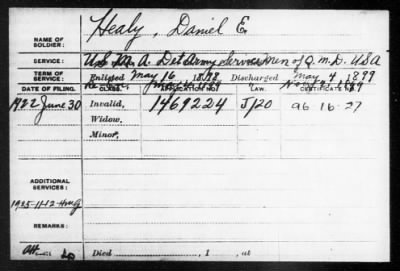 NAME OF SOLDIER: Healy, Daniel E.
SERVICE: U.S.M.A. Det Army Service Men of Q.M.D. USA
TERM OF SERVICE: Enlisted May 16, 1898 Discharged May 4, 1899
DATE OF FILING. CLASS. APPLICATION NO. LAW. CERTIFICATE NO.
1922 June 30 Invalid, 1469224 J/20 96-16-27
Widow,
Minor,
ADDITIONAL SERVICES:
1925-11-12
REMARKS:
Died , 1 , at